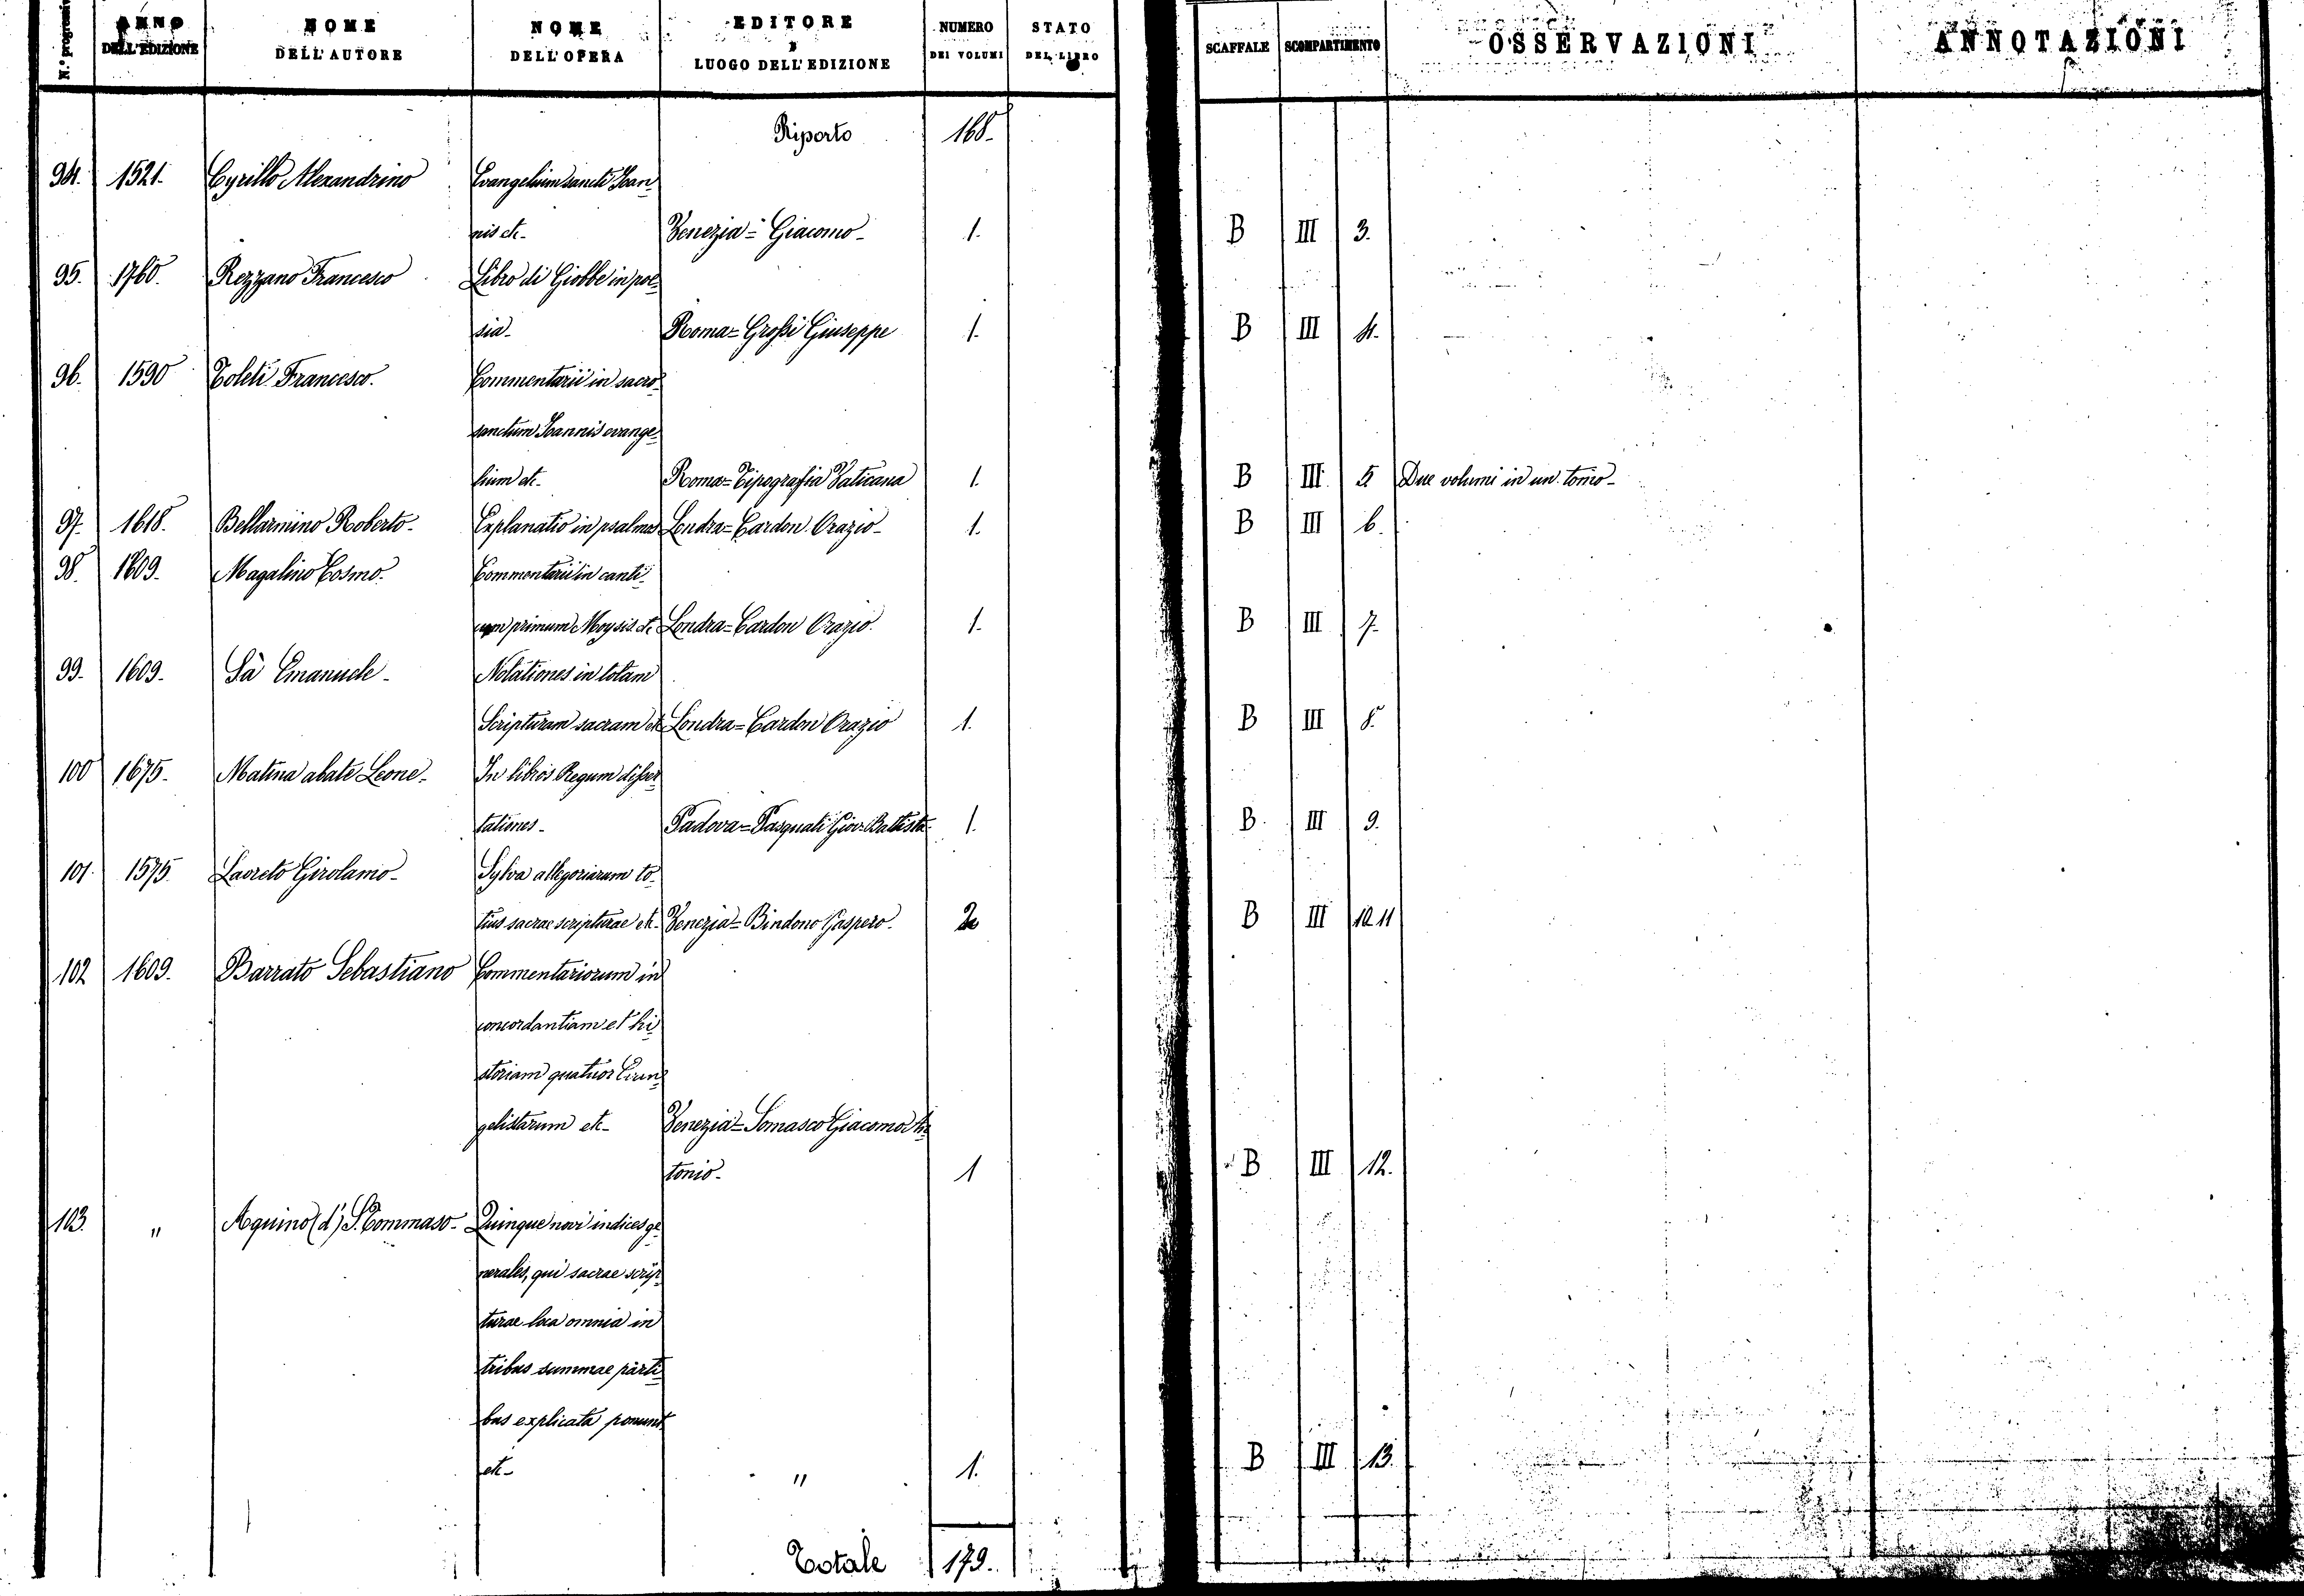 N.º progressivo | ANNO DELL'EDIZIONE | NOME DELL'AUTORE | NOME DELL'OPERA | EDITORE E LUOGO DELL'EDIZIONE | NUMERO DEI VOLUMI | STATO DEL LIBRO | SCAFFALE | SCOMPARTIMENTO | OSSERVAZIONI | ANNOTAZIONI
Riporto 168.
94. 1521. Cyrillo Alexandrino Evangelium sancti Ioan-
nis etc. Venezia = Giacomo 1. B III 3.
95. 1760. Rezzano Francesco Libro di Giobbe in poe-
sia. Roma = Grossi Giuseppe 1. B III 4.
96. 1590 Toleti Francesco. Commentarii in sacro-
sanctum Ioannis evange-
lium etc. Roma = Tipografia Vaticana 1. B III 5 Due volumi in un tomo.
97. 1618. Bellarmino Roberto. Explanatio in psalmos Londra = Cardon Orazio 1. B III 6.
98. 1609. Magalino Cosmo. Commentarii in canti-
cum primum Moysis etc. Londra = Cardon Orazio. 1. B III 7.
99. 1609. Sà Emanuele. Notationes in totam
Scripturam sacram etc. Londra = Cardon Orazio 1. B III 8.
100 1675. Matina abate Leone. In libros Regum disser-
tationes. Padova = Pasquali Giov. Battista 1. B III 9.
101. 1575. Laoreto Girolamo. Sylva allegoriarum to-
tius sacrae scripturae etc. Venezia = Bindono Gaspero. 2 B III 10.11
102 1609. Barrato Sebastiano Commentariorum in
concordantiam et hi-
storiam quatuor Evan-
gelistarum etc. Venezia = Somasco Giacomo An-
tonio. 1 B III 12.
103. " Aquino (d') S. Tommaso. Quinque novi indices ge-
nerales, qui sacrae scrip-
turae loca omnia in
tribus summae parti-
bus explicata ponunt
etc. " 1. B III 13.
Totale 179.